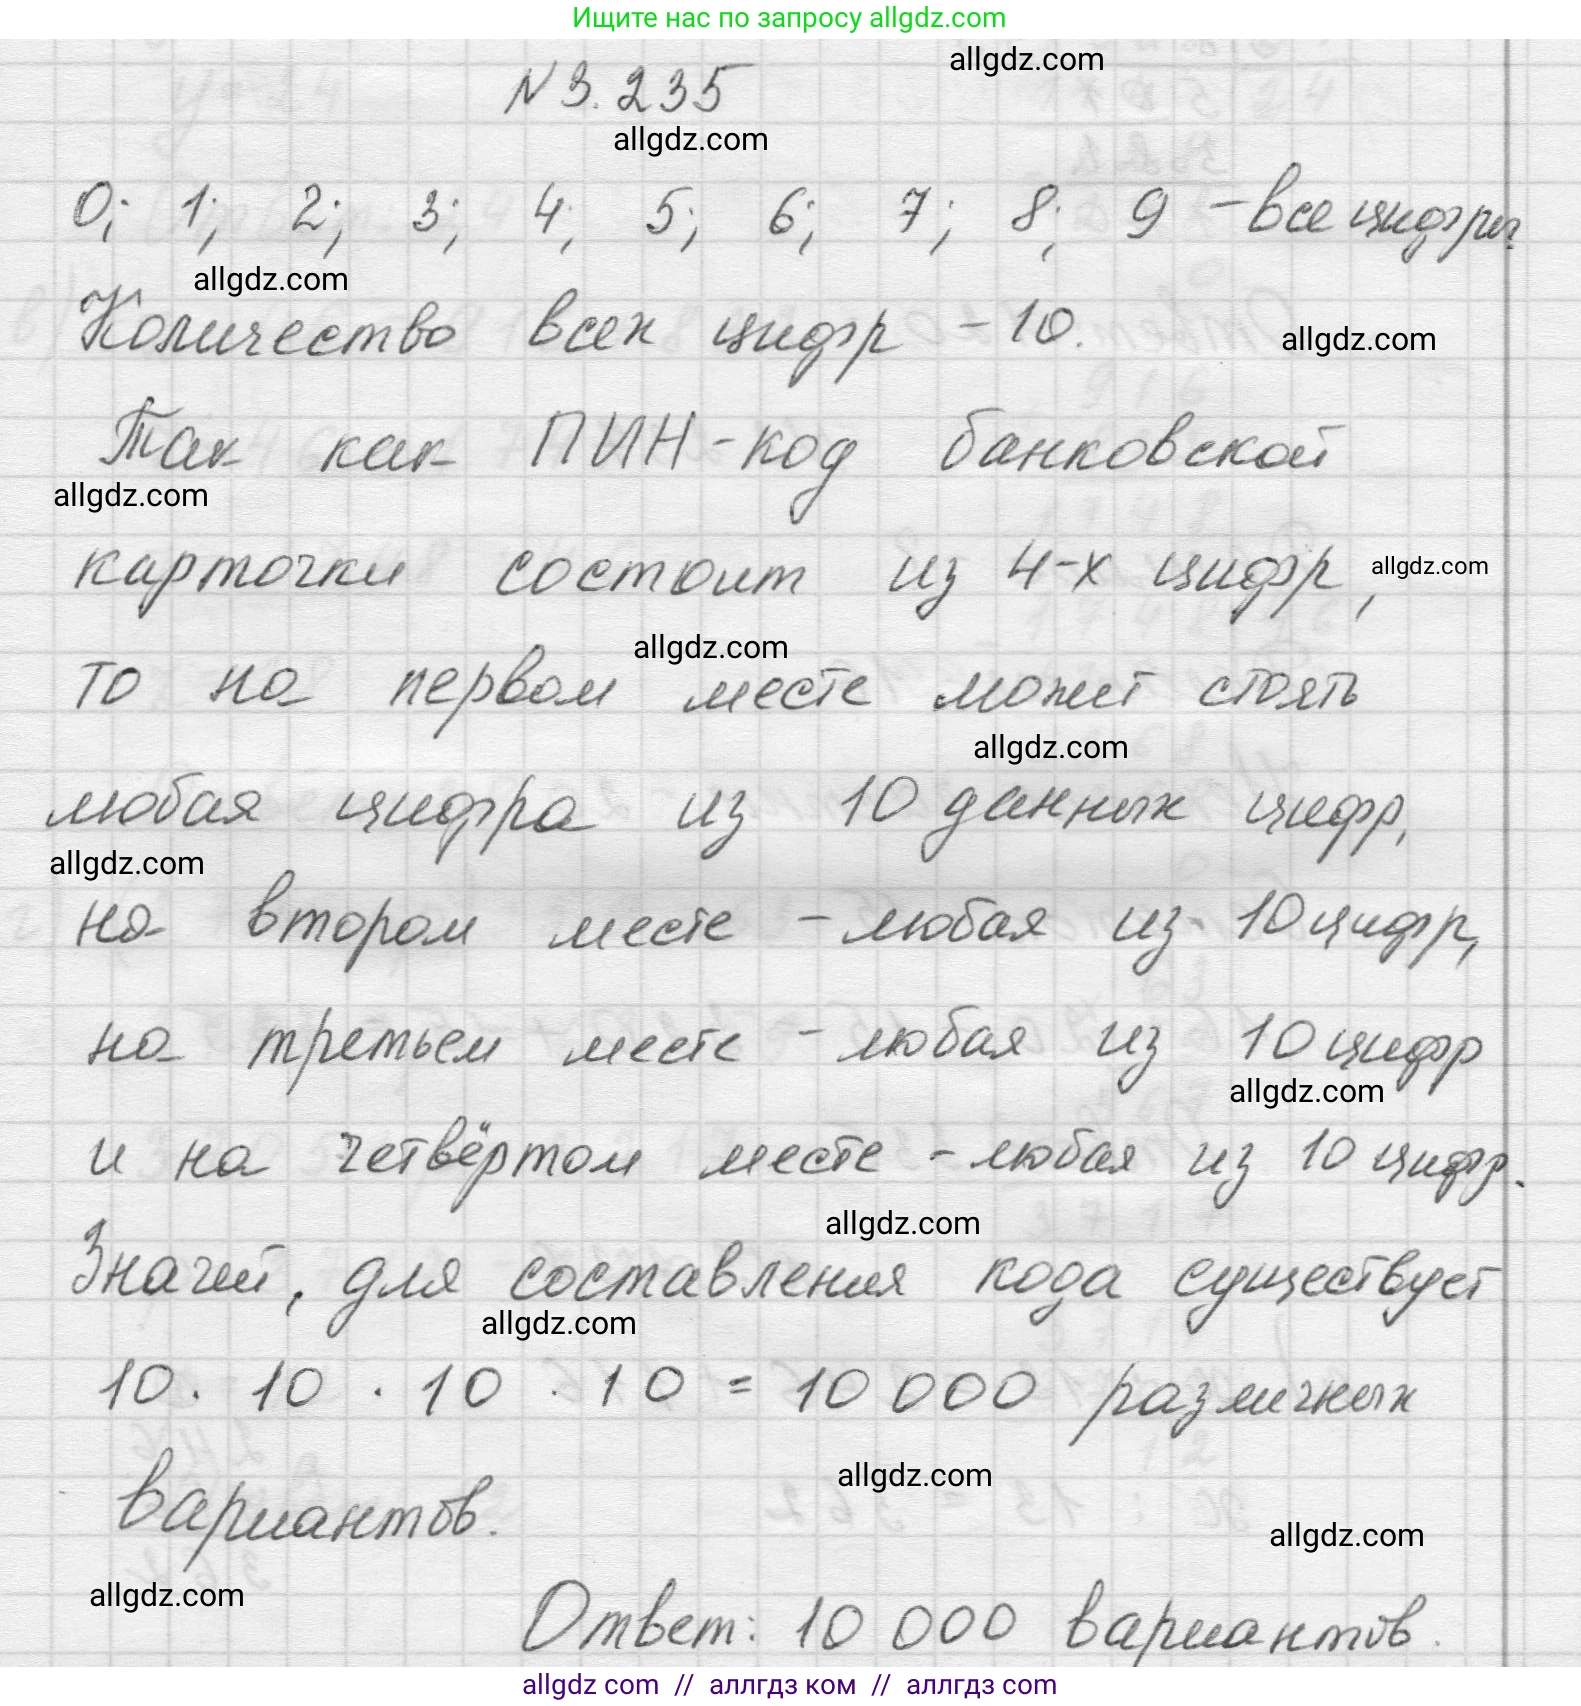 Ищите нас по запросу allgdz.com
allgdz.com
N 3.235
allgdz.com
0; 1; 2; 3; 4; 5; 6; 7; 8; 9 - все цифры
allgdz.com
Количество всех цифр - 10.
allgdz.com
Так как ПИН-код банковской
allgdz.com
карточки состоит из 4-х цифр,
allgdz.com
allgdz.com
то на первом месте может стоять
allgdz.com
любая цифра из 10 данных цифр,
allgdz.com
на втором месте - любая из 10 цифр,
на третьем месте - любая из 10 цифр
allgdz.com
и на четвёртом месте - любая из 10 цифр.
allgdz.com
Значит, для составления кода существует
allgdz.com
10 · 10 · 10 · 10 = 10 000 различных
allgdz.com
вариантов.
allgdz.com
allgdz.com
Ответ: 10 000 вариантов.
allgdz com // аллгдз ком // аллгдз com